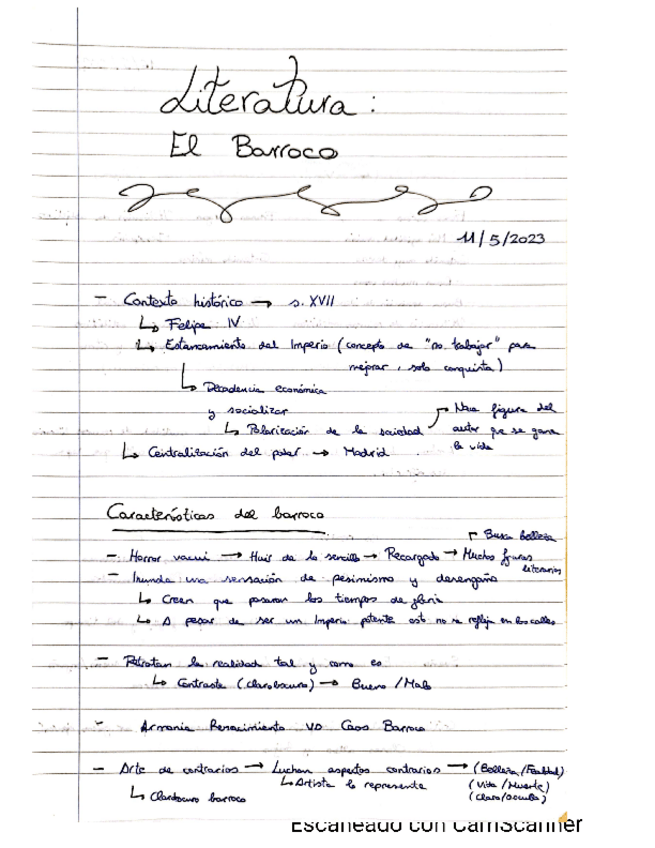 Literatura:
El Barroco
11/5/2023
- Contexto histórico → s. XVII
↳ Felipe IV
↳ Estancamiento del Imperio (concepto de "no trabajar" para
mejorar, solo conquista)
↳ Decadencia económica
y socializar
↳ Polarización de la sociedad → Nueva figura del
autor que se gana
la vida
↳ Centralización del poder → Madrid
Características del barroco
- Horror vacui → Huir de lo sencillo → Recargado → Muchas figuras
literarias
→ Busca belleza
- Inunda una sensación de pesimismo y desengaño
↳ Creen que pasaron los tiempos de gloria
↳ A pesar de ser un Imperio potente esto no se refleja en las calles
- Retratan la realidad tal y como es
↳ Contraste (claroscuro) → Bueno / Malo
- Armonía Renacimiento VS Caos Barroco
- Arte de contrarios → Luchan aspectos contrarios → (Belleza/Fealdad)
↳ Artista lo representa (Vida/Muerte)
↳ Claroscuro barroco (Claro/oscuro)
Escaneado con CamScanner